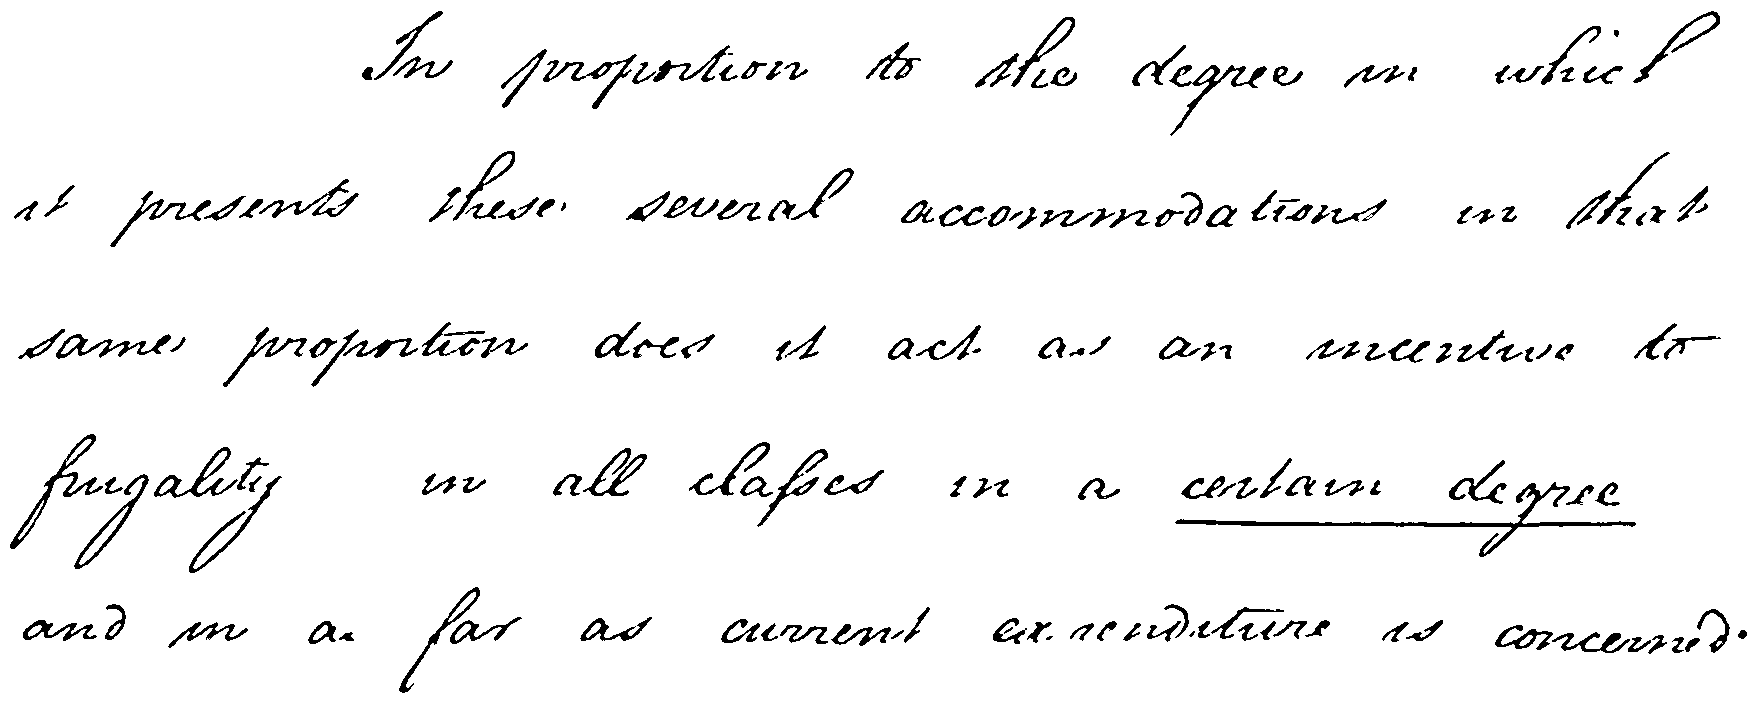 In proportion to the degree in which
it presents these several accommodations in that
same proportion does it act as an incentive to
frugality in all classes in a certain degree
and in a far as current expenditure is concerned.